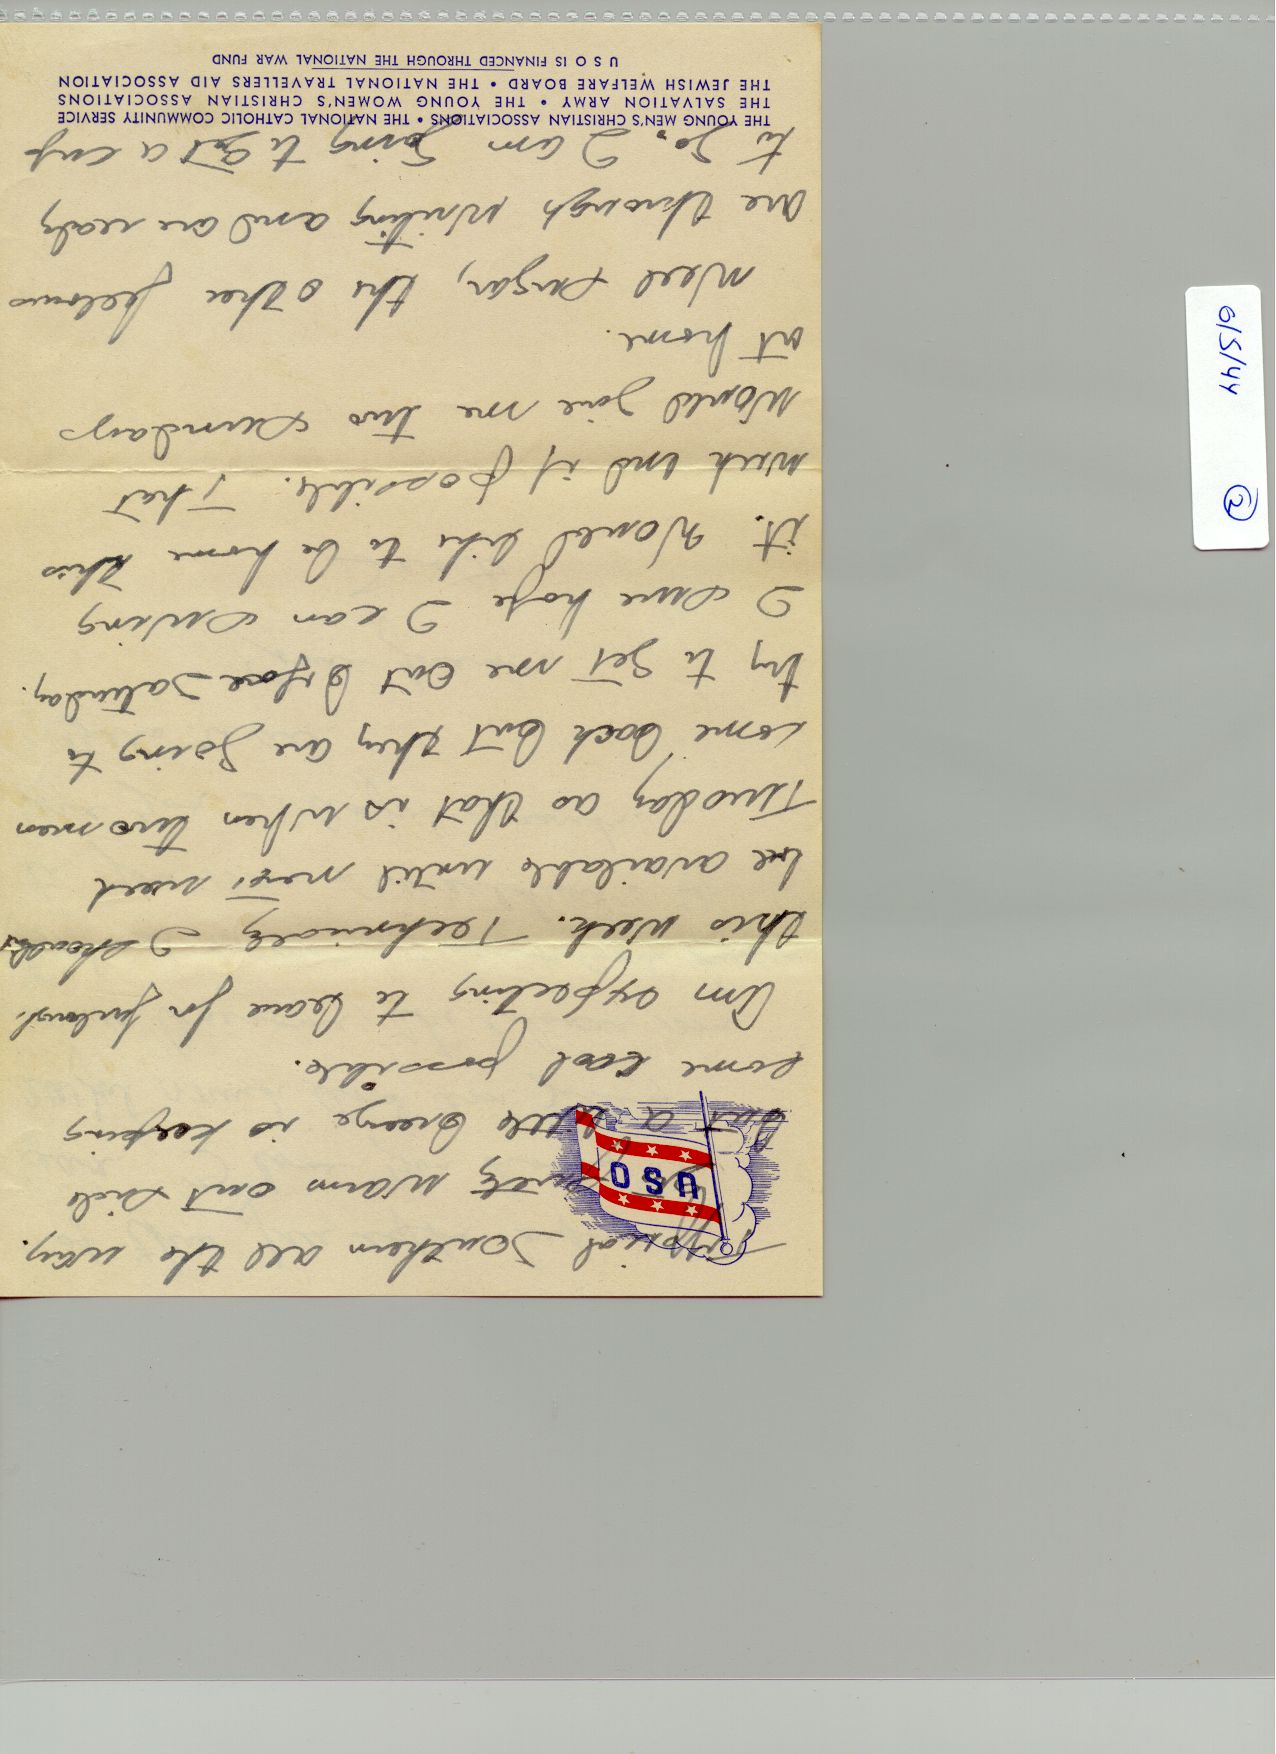 Typical Southern all the way.
pretty warm out side
but a little breeze is keeping
some cool possible.
Am expecting to leave for furlough
this week. Technically I shouldn't
be available until next week
Tuesday as that is when two men
come back but they are going to
try to get me out before Saturday.
I sure hope I can swing
it. Would like to be home this
week end if possible. That
would give me two Sundays
at home.
Well Sugar, the other fellows
are through writing and are ready
to go. I am going to get a cup
USO
THE YOUNG MEN'S CHRISTIAN ASSOCIATIONS • THE NATIONAL CATHOLIC COMMUNITY SERVICE
THE SALVATION ARMY • THE YOUNG WOMEN'S CHRISTIAN ASSOCIATIONS
THE JEWISH WELFARE BOARD • THE NATIONAL TRAVELLERS AID ASSOCIATION
U S O IS FINANCED THROUGH THE NATIONAL WAR FUND
6/5/44 2